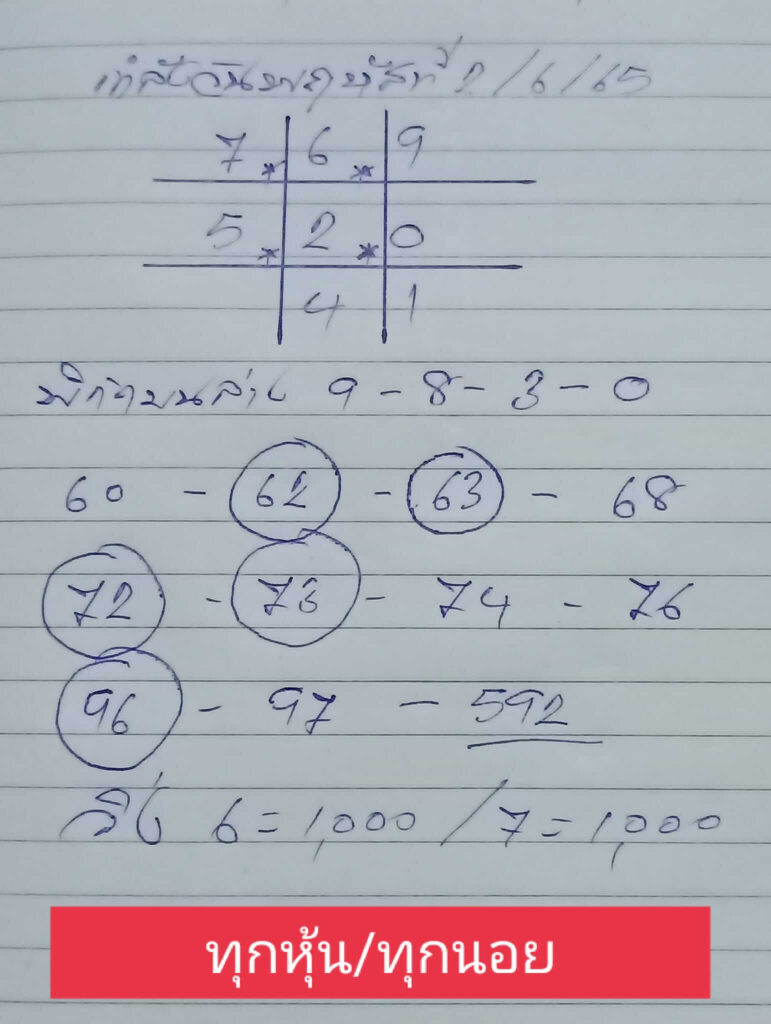 กำลังวันพฤหัสที่ 2/6/65
7 * 6 * 9
5 * 2 * 0
4 1
พิกัดบนล่าง 9 - 8 - 3 - 0
60 - 62 - 63 - 68
72 - 73 - 74 - 76
96 - 97 - 592
วิ่ง 6 = 1,000 / 7 = 1,000
ทุกหุ้น/ทุกนอย